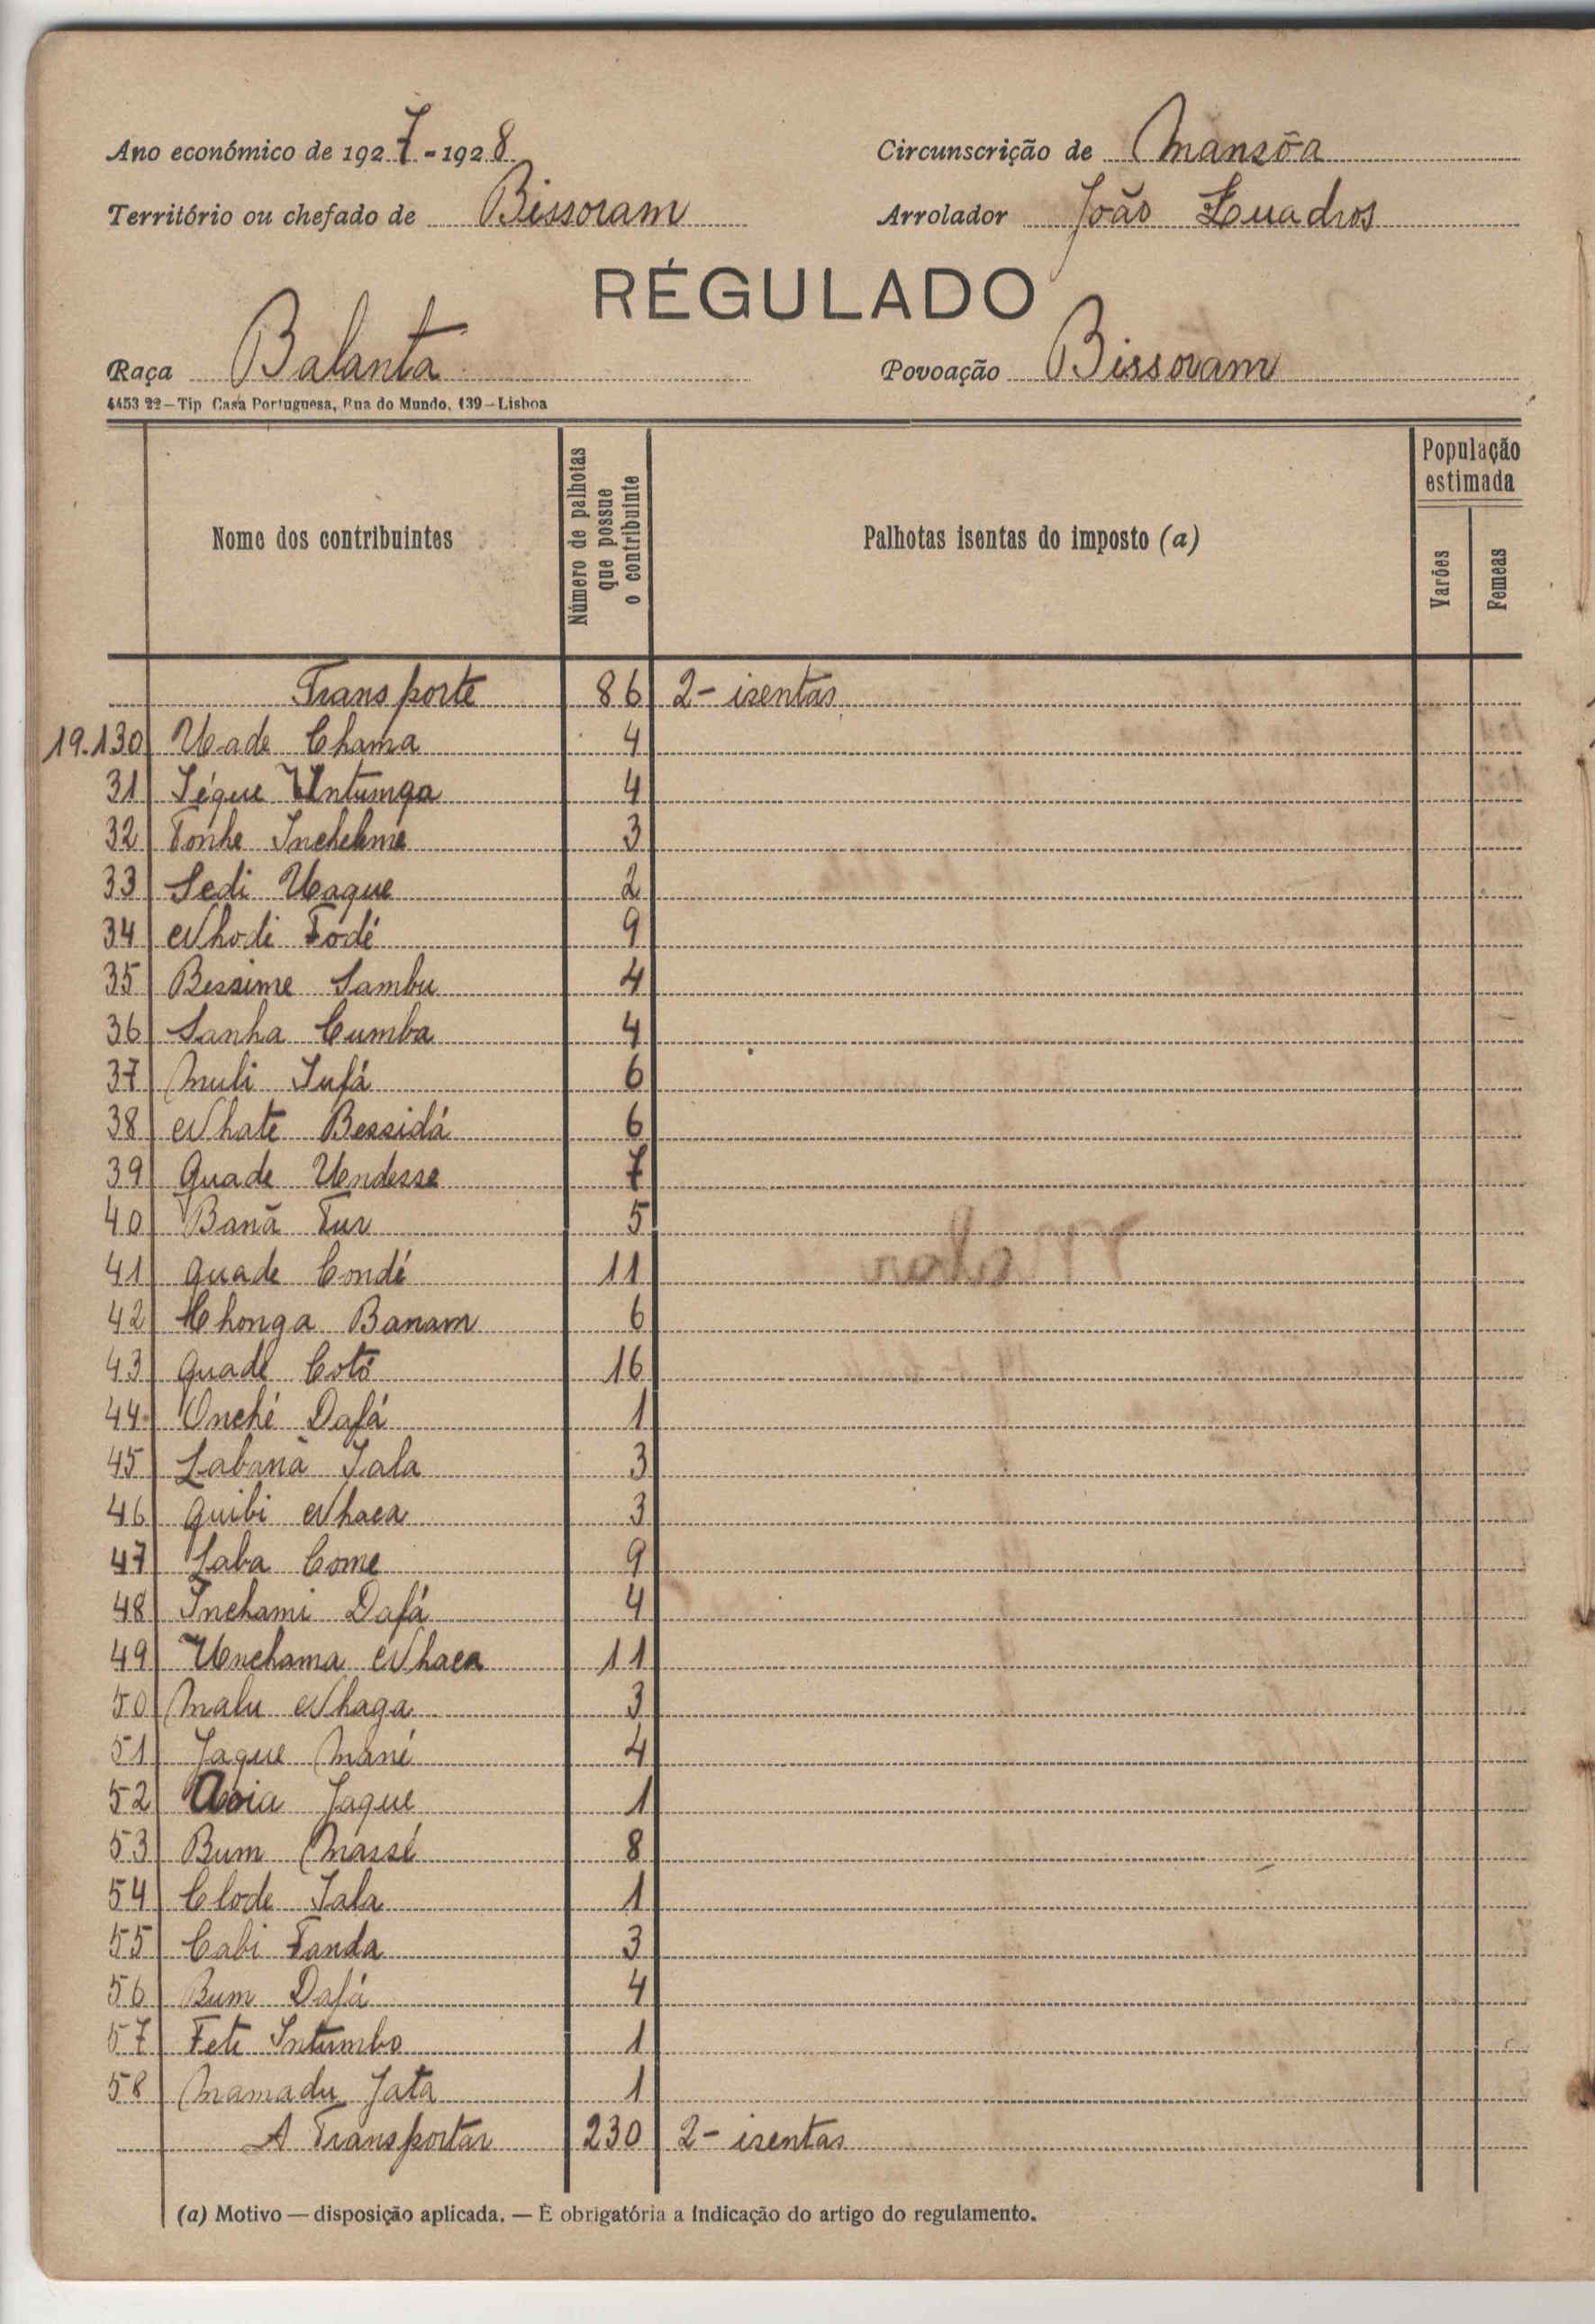 Ano económico de 1927-1928
Circunscrição de Mansôa
Território ou chefado de Bissoram
Arrolador João Quadros
RÉGULADO
Raça Balanta
Povoação Bissoram
4453 22—Tip Casa Portuguesa, Rua do Mundo, 139—Lisboa
Nome dos contribuintes
Número de palhotas que possue o contribuinte
Palhotas isentas do imposto (a)
População estimada
Varões
Femeas
Transporte 86 2- isentas
19.130 Uade Chama 4
31 Iégue Untunga 4
32 Tonhe Incheleme 3
33 Sedi Uaque 2
34 Nhodi Fodé 9
35 Bessime Sambu 4
36 Sanha Cumba 4
37 Muli Iufá 6
38 Nhate Bessidá 6
39 Quade Undesse 7
40 Banã Tur 5
41 Quade Condé 11
42 Chonga Banam 6
43 Quade Cotó 16
44 Onché Dafá 1
45 Labanã Iala 3
46 Quibi Nhaca 3
47 Laba Come 9
48 Inchami Dafá 4
49 Unchama Nhaca 11
50 Malu Nhaga 3
51 Jaque Mané 4
52 Jaque 1
53 Bum Massé 8
54 Clode Iala 1
55 Cabi Fanda 3
56 Bum Dafá 4
57 Fete Intumbo 1
58 Mamadu Jata 1
A Transportar 230 2- isentas
(a) Motivo — disposição aplicada. — É obrigatória a indicação do artigo do regulamento.